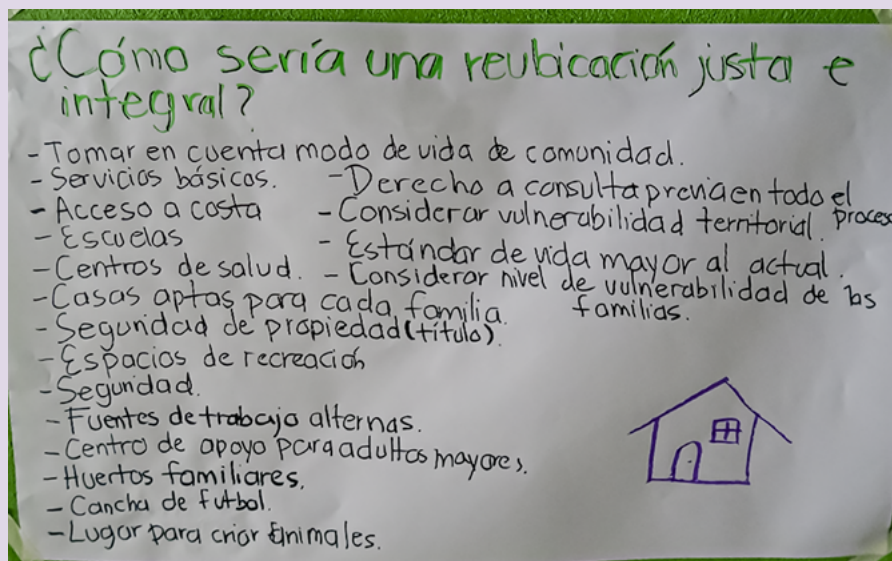 ¿Cómo sería una reubicación justa e
integral?
- Tomar en cuenta modo de vida de comunidad.
- Servicios básicos.
- Acceso a costa
- Escuelas
- Centros de salud.
- Casas aptas para cada familia.
- Seguridad de propiedad (título).
- Espacios de recreación
- Seguridad.
- Fuentes de trabajo alternas.
- Centro de apoyo para adultos mayores.
- Huertos familiares.
- Cancha de futbol.
- Lugar para criar animales.
- Derecho a consulta previa en todo el
proceso
- Considerar vulnerabilidad territorial.
- Estándar de vida mayor al actual.
- Considerar nivel de vulnerabilidad de las
familias.